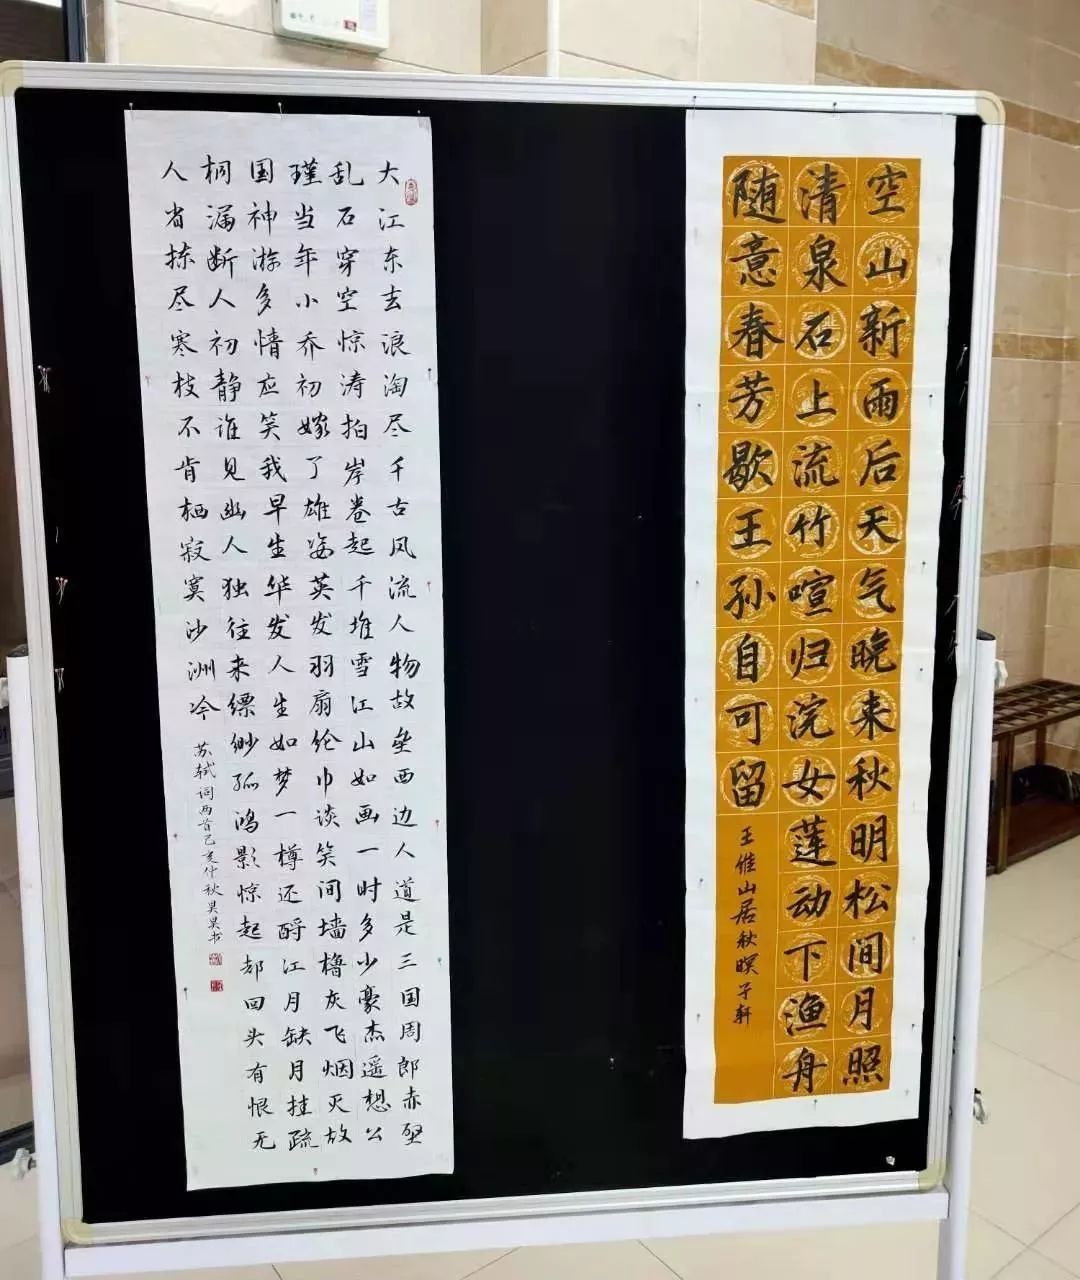 空山新雨后天气晚来秋明松间月照
清泉石上流竹喧归浣女莲动下渔舟
随意春芳歇王孙自可留
王维山居秋暝子轩
大江东去浪淘尽千古风流人物故垒西边人道是三国周郎赤壁
乱石穿空惊涛拍岸卷起千堆雪江山如画一时多少豪杰遥想公
瑾当年小乔初嫁了雄姿英发羽扇纶巾谈笑间墙橹灰飞烟灭故
国神游多情应笑我早生华发人生如梦一樽还酹江月缺月挂疏
桐漏断人初静谁见幽人独往来缥缈孤鸿影惊起却回头有恨无
人省拣尽寒枝不肯栖寂寞沙洲冷
苏轼词两首己亥仲秋昊昊书